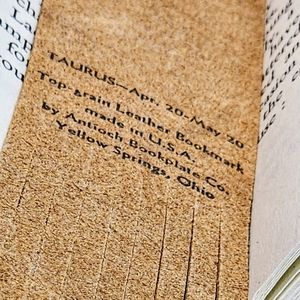 TAURUS—Apr. 20-May 20
Top-grain Leather Bookmark
made in U.S.A.
by Antioch Bookplate Co.
Yellow Springs, Ohio